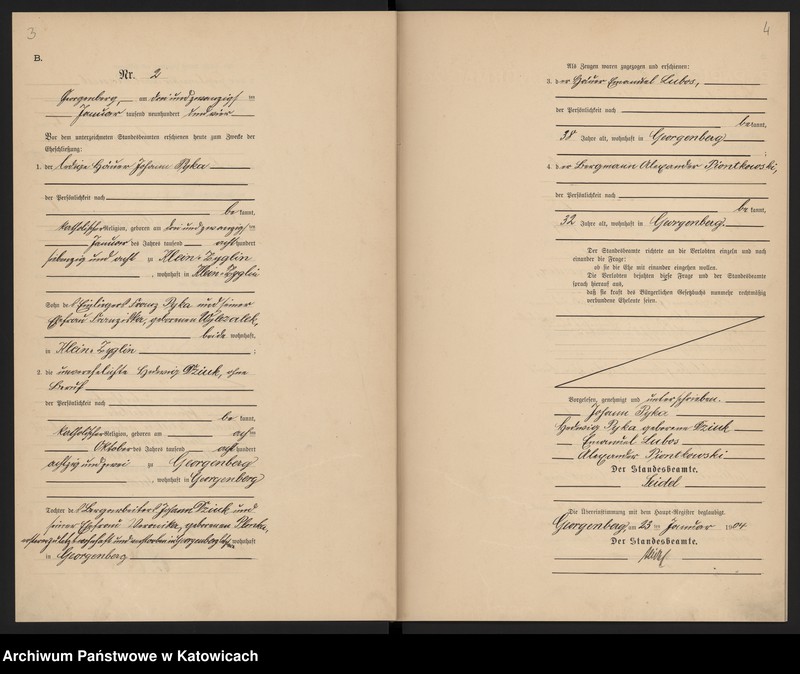 3
B.
Nr. 2
Georgenberg, am drei und zwanzigsten
Januar tausend neunhundert und vier
Vor dem unterzeichneten Standesbeamten erschienen heute zum Zwecke der
Eheschließung:
1. der ledige Häuer Johann Pyka
der Persönlichkeit nach
bekannt,
katholischer Religion, geboren am drei und zwanzigsten
Januar des Jahres tausend achthundert
siebenzig und acht zu Klein-Zyglin
, wohnhaft in Klein-Zyglin
Sohn des Einliegers Franz Pyka und seiner
Ehefrau Franziska, geborenen Wylezalek,
beide wohnhaft
in Klein-Zyglin ;
2. die unverehelichte Hedwig Dziuk, ohne
Beruf
der Persönlichkeit nach
bekannt,
katholischer Religion, geboren am achten
Oktober des Jahres tausend achthundert
achtzig und zwei zu Georgenberg
, wohnhaft in Georgenberg
Tochter des Bergarbeiters Johann Dziuk und
seiner Ehefrau Veronika, geborenen
ersterer zuletzt wohnhaft und verstorben in Georgenberg, wohnhaft
in Georgenberg
4
Als Zeugen waren zugezogen und erschienen:
3. der Häuer Emanuel Lubos,
der Persönlichkeit nach
bekannt,
38 Jahre alt, wohnhaft in Georgenberg
;
4. der Bergmann Alexander Piontkowski,
der Persönlichkeit nach
bekannt,
32 Jahre alt, wohnhaft in Georgenberg.
Der Standesbeamte richtete an die Verlobten einzeln und nach
einander die Frage:
ob sie die Ehe mit einander eingehen wollen.
Die Verlobten bejahten diese Frage und der Standesbeamte
sprach hierauf aus,
daß sie kraft des Bürgerlichen Gesetzbuchs nunmehr rechtmäßig
verbundene Eheleute seien.
Vorgelesen, genehmigt und unterschrieben.
Johann Pyka
Hedwig Pyka geborene Dziuk
Emanuel Lubos
Alexander Piontkowski
Der Standesbeamte.
Seidel
Die Übereinstimmung mit dem Haupt-Register beglaubigt.
Georgenberg, am 23 ten Januar 1904
Der Standesbeamte.
Seidel
Archiwum Państwowe w Katowicach